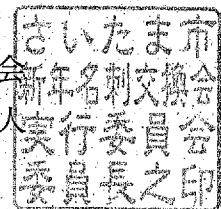 さいたま市
新年名刺交換会
実行委員会
委員長之印
会
人